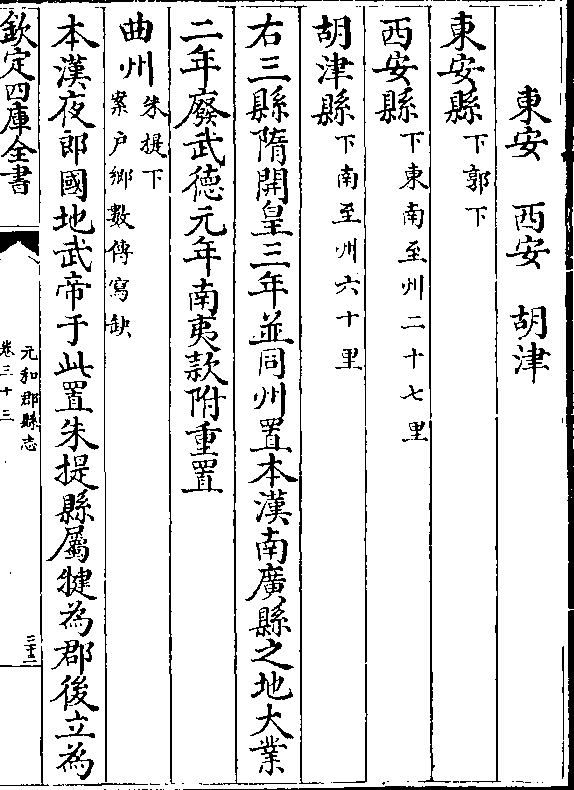 東安　西安　胡津
東安縣下郭下
西安縣下東南至州二十七里
胡津縣下南至州六十里
右三縣隋開皇三年並同州置本漢南廣縣之地大業
二年廢武德元年南夷款附重置
曲州朱提下
案户鄉數傳寫缺
本漢夜郎國地武帝于此置朱提縣屬犍為郡後立為
欽定四庫全書
元和郡縣志
卷三十三